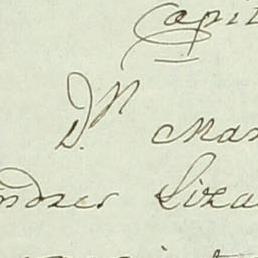 Capit
D.ⁿ Man
ndres Liza